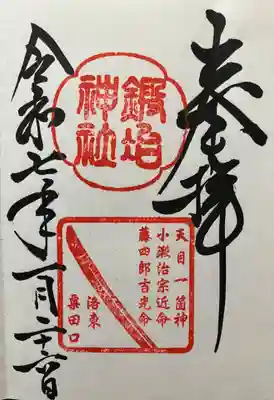 奉拝
鍛冶
神社
天目一箇神
小鍛治宗近命
藤四郎吉光命
洛東
粟田口
令和七年一月